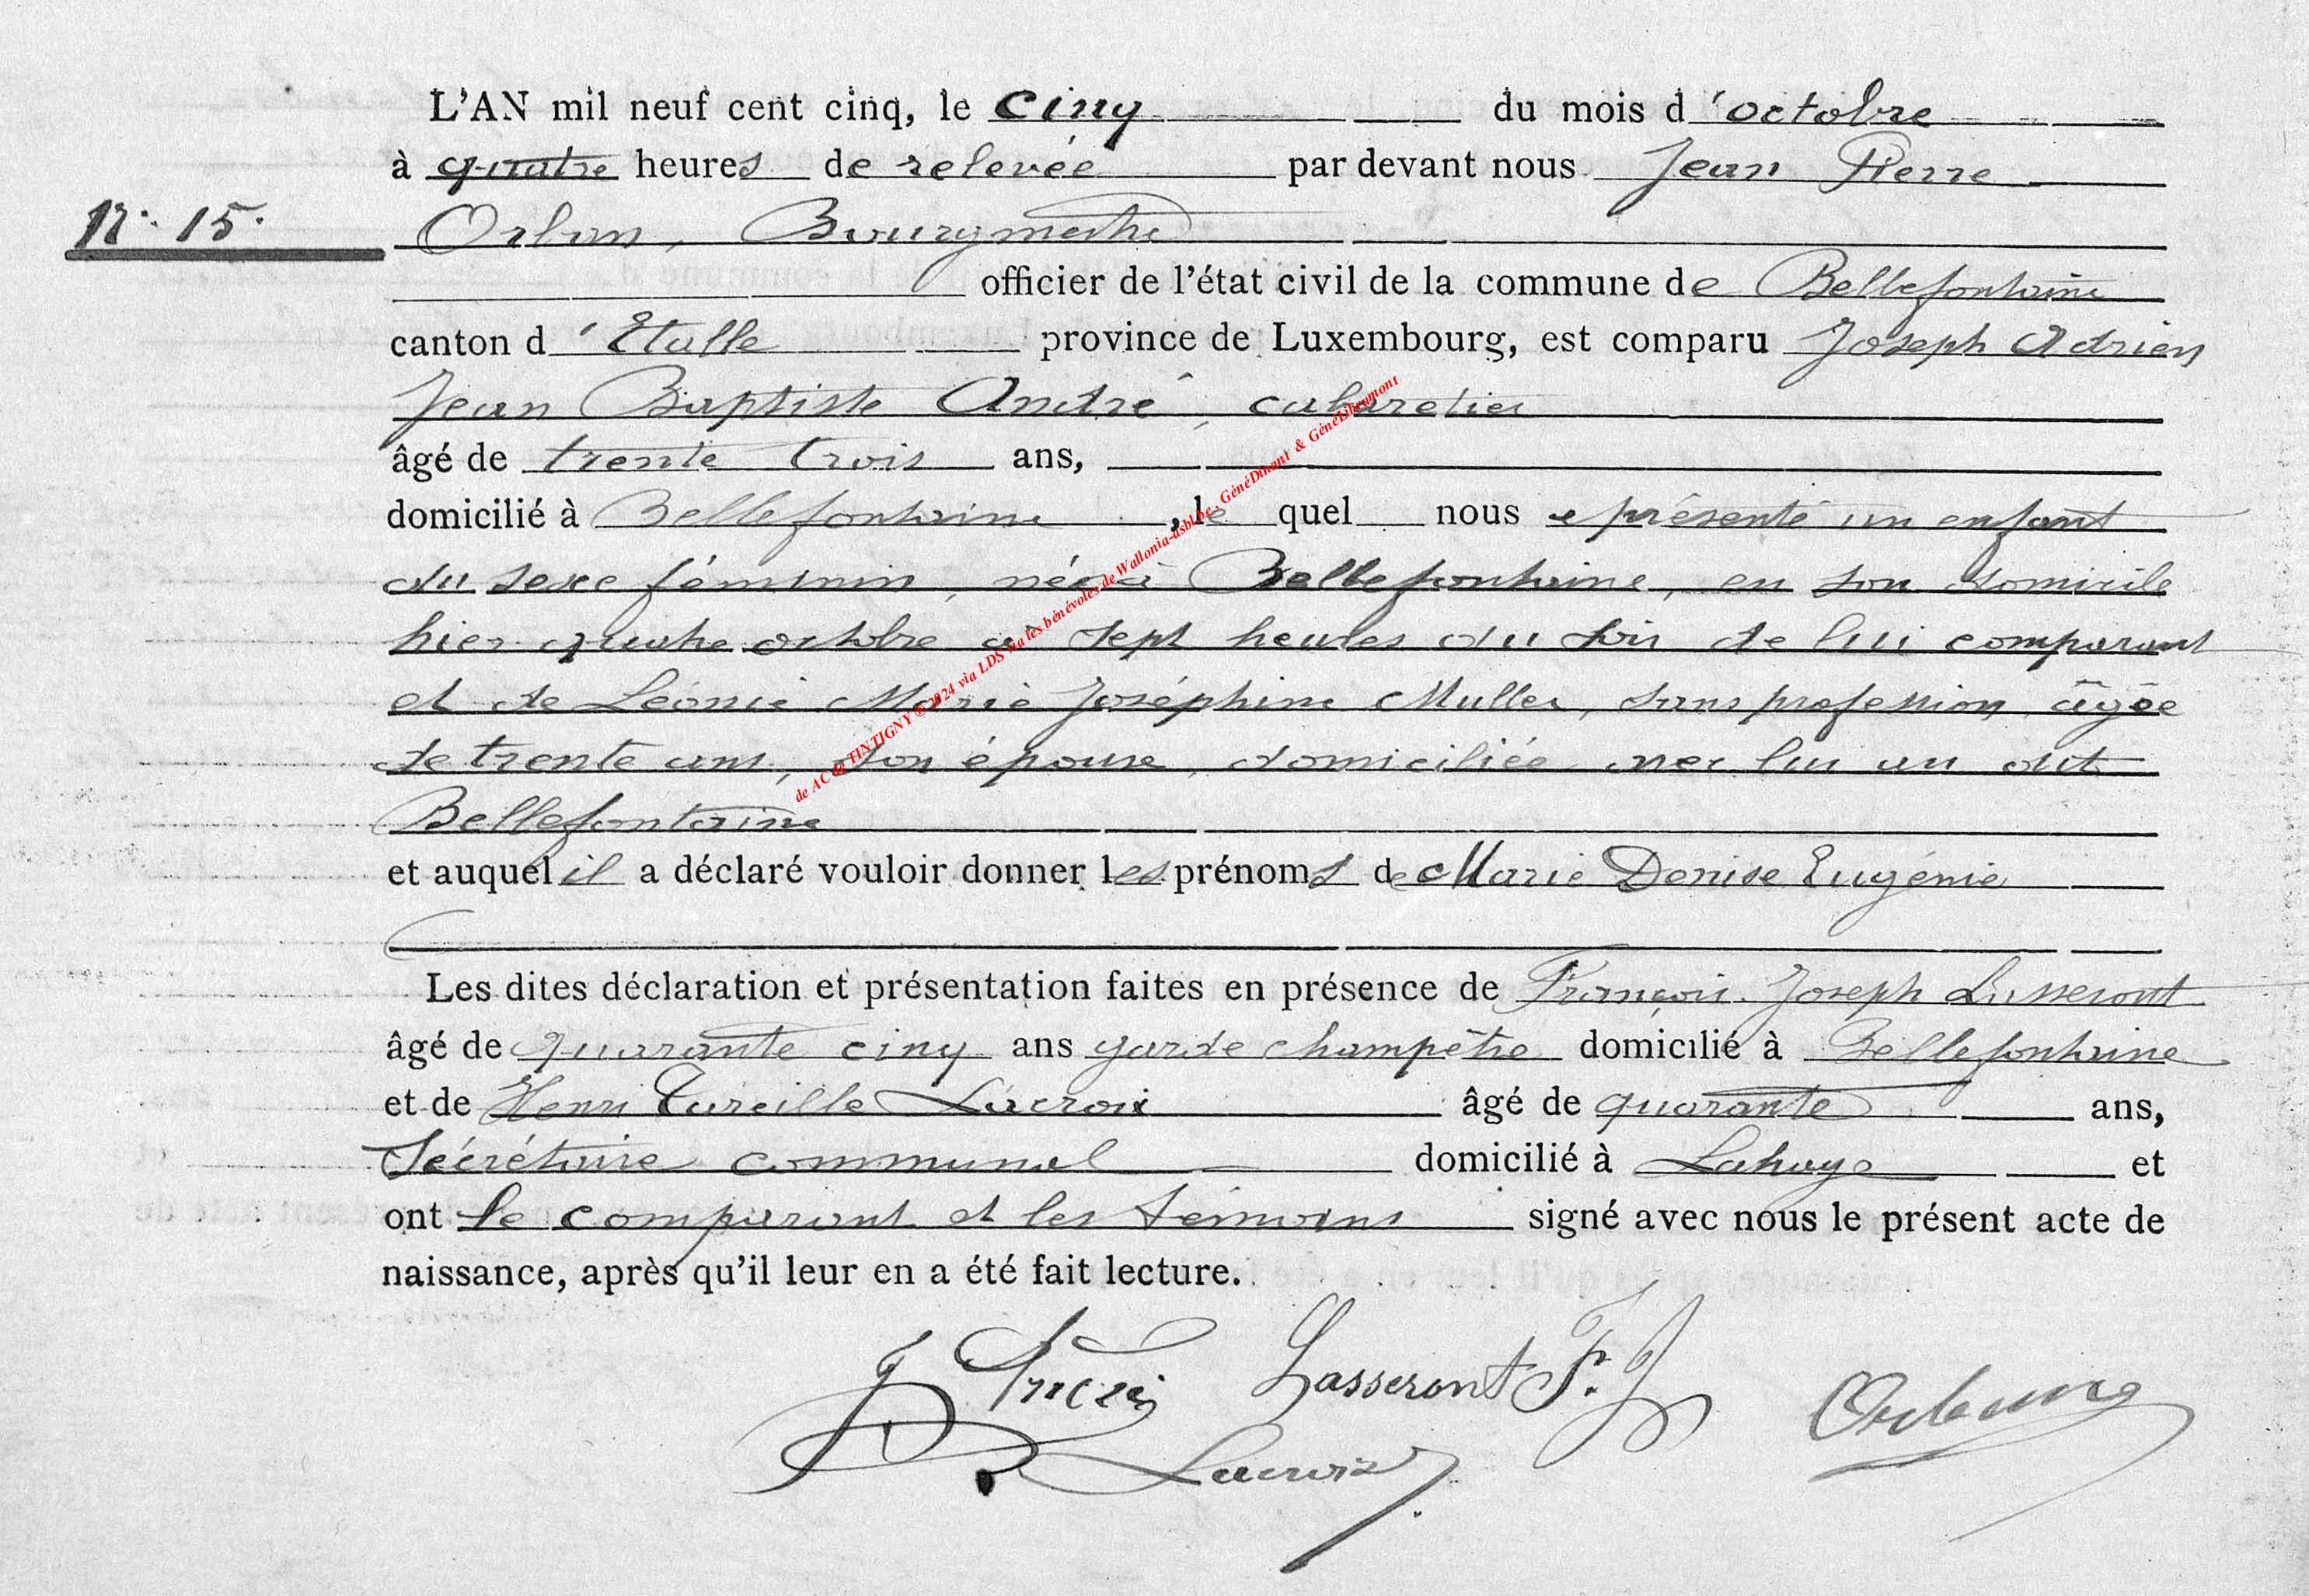 L'AN mil neuf cent cinq, le cinq du mois d'octobre
à quatre heures de relevée par devant nous Jean Pierre
N° 15.
Orban, Bourgmestre
officier de l'état civil de la commune de Bellefontaine
canton d'Etalle province de Luxembourg, est comparu Joseph Adrien
Jean Baptiste André, cabaretier
âgé de trente trois ans,
domicilié à Bellefontaine, le quel nous a présenté un enfant
du sexe féminin, née à Bellefontaine, en son domicile
hier quatre octobre à sept heures du soir de lui comparant
et de Léonie Marie Joséphine Muller, sans profession, âgée
de trente ans, son épouse, domiciliée avec lui au dit
Bellefontaine
et auquel il a déclaré vouloir donner les prénoms de Marie Denise Eugénie
Les dites déclaration et présentation faites en présence de François Joseph Lasseront
âgé de quarante cinq ans garde champêtre domicilié à Bellefontaine
et de Henri Lacroix âgé de quarante ans,
Sécrétaire communal domicilié à Lahage et
ont le comparant et les témoins signé avec nous le présent acte de
naissance, après qu'il leur en a été fait lecture.
J André Lasseront F. J Orban
Lacroix
de AC de TINTIGNY © 2024 via LDS via les bénévoles de Wallonia-asbl.be - GénéDinant & GénéLibramont